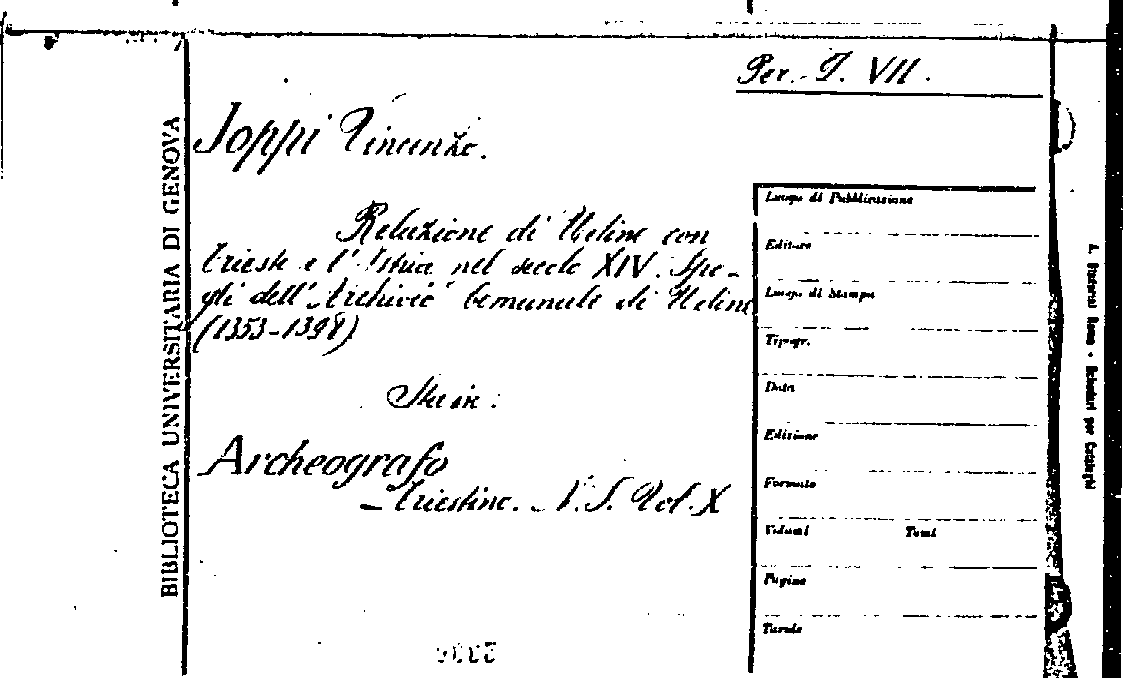 Per. I. VII.
BIBLIOTECA UNIVERSITARIA DI GENOVA
Joppi Vincenzo.
Relazione di Udine con
Trieste e l'Istria nel secolo XIV. Spo-
gli dell'Archivio Comunale di Udine
(1353-1398)
Sta in:
Archeografo
Triestino. N. S. Vol. X
Luogo di Pubblicazione
Editore
Luogo di Stampa
Tipogr.
Data
Edizione
Formato
Volumi Tomi
Pagine
Tavole
Roma - Schedari per Cataloghi